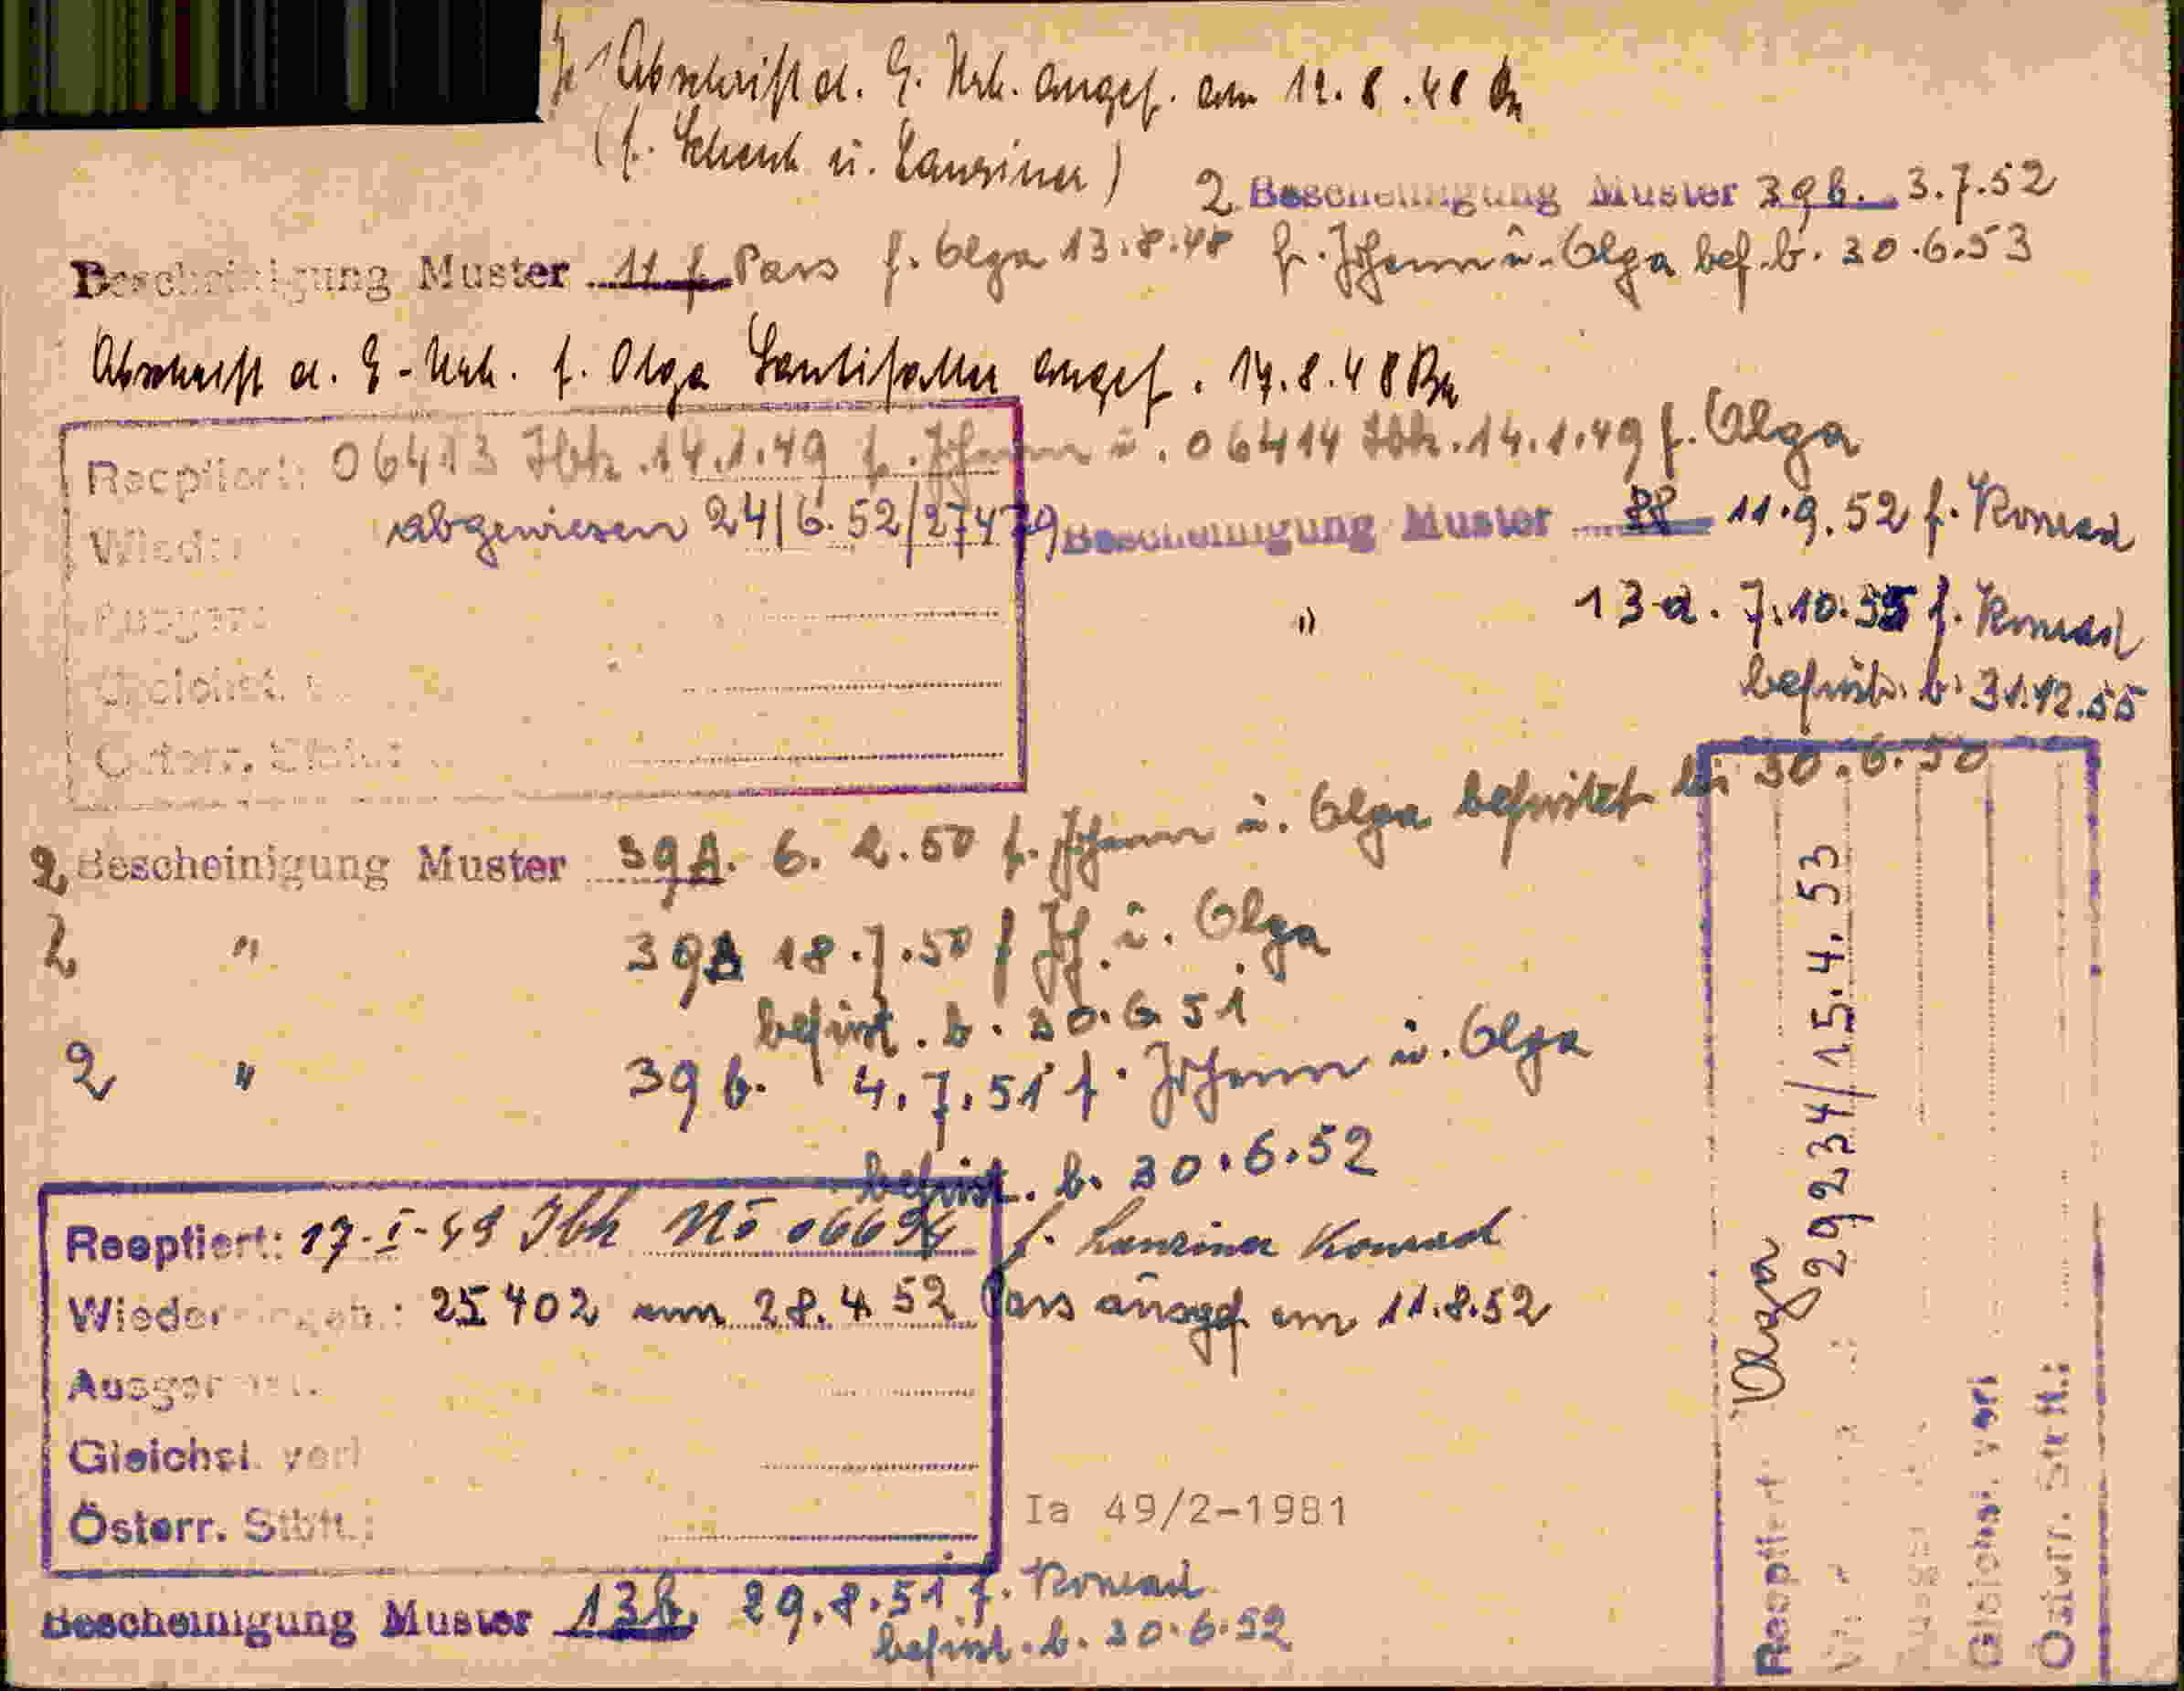 Abschrift d. E. Urk. angef. am 12.8.48
(f. Schenk u. Lanziner)
2 Bescheinigung Muster 39b. 3.7.52
f. Johann u. Olga bef. b. 30.6.53
Bescheinigung Muster 11 f Pass f. Olga 13.8.48
Abschrift d. E-Urk. f. Olga Santifaller angef. 17.8.48
Reoptiert: 06413 Ibk. 14.1.49 f. Johann u. 06414 Ibk. 14.1.49 f. Olga
Wied abgewiesen 24/6.52/27479
Bescheinigung Muster 11.9.52 f. Konrad
" 13 a. 7.10.55 f. Konrad
befrist. b. 31.12.55
Österr.
2 Bescheinigung Muster 39A. 6.2.50 f. Johann u. Olga befristet bis 30.6.50
2 " 39A 18.7.50 f Joh. u. Olga
befrist. b. 30.6.51
2 " 39 b. 4.7.51 f. Johann u. Olga
befrist. b. 30.6.52
Reoptiert: 17-I-49 Ibk No f. Lanziner Konrad
Wieder : 25402 am 28.4.52 Pass ausgef am 11.8.52
Gleichst. verl
Österr. Stbft.:
Ia 49/2-1981
Bescheinigung Muster 13b. 29.8.51 f. Konrad
befrist. b. 30.6.52
Reoptiert Olga 29234/15.4.53
Gleichst. verl
Österr. Stbft.: